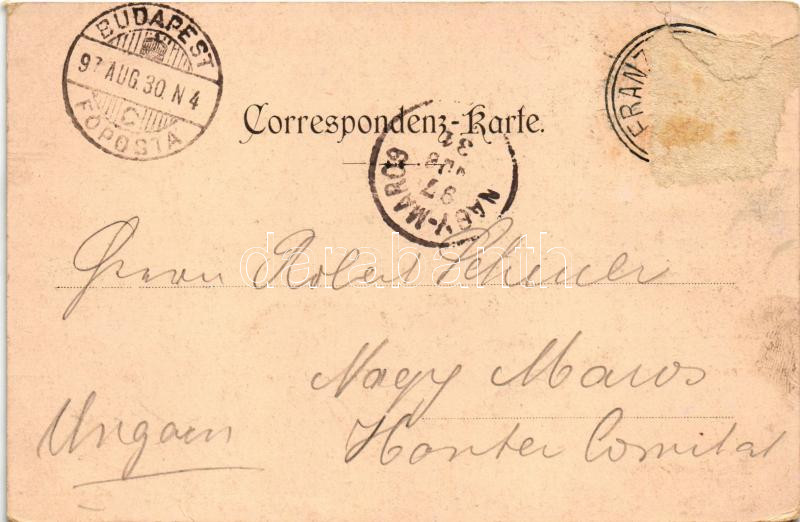 BUDAPEST
97 AUG. 30. N 4
C
FŐPOSTA
FRANZ
Correspondenz-Karte.
NAGY-MAROS
97
AUG
30
Herrn Robert Scheuer
Nagy Maros
Ungarn
Honter Comitat
darabanth.com